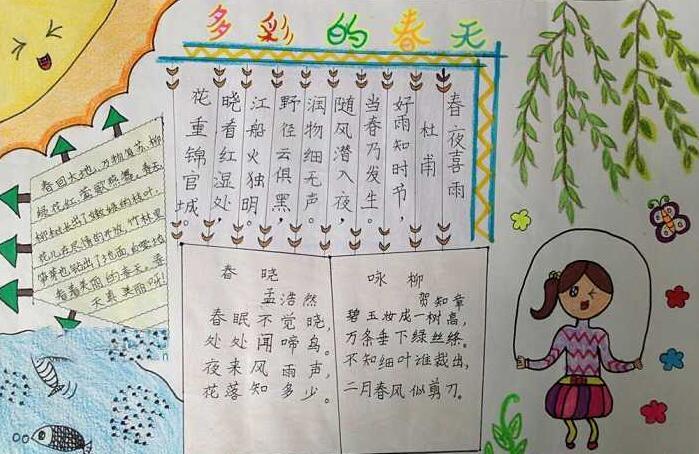 多彩的春天
春夜喜雨
杜甫
好雨知时节，
当春乃发生。
随风潜入夜，
润物细无声。
野径云俱黑，
江船火独明。
晓看红湿处，
花重锦官城。
春回大地，万物复苏，柳
绿花红，莺歌燕舞。春天，
柳树长出了嫩绿的枝叶，
花儿在尽情的开放，竹林里
笋芽也钻出了地面，
春天真美丽呀！
春晓
孟浩然
春眠不觉晓，
处处闻啼鸟。
夜来风雨声，
花落知多少。
咏柳
贺知章
碧玉妆成一树高，
万条垂下绿丝绦。
不知细叶谁裁出，
二月春风似剪刀。